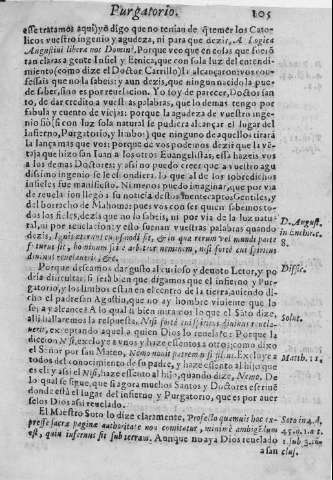 Purgatorio. 105
esse tratamos aqui) yo digo que no tenian de q̃ temer los Cato-
licos vuestro ingenio y agudeza, ni para que dezir, A Logica
Augustini libera nos Domine, Porque veo que en cosas que fuerõ
tan claras a gente Infiel y Etnica, que con sola luz del entendi-
miento (como dize el Doctor Carrillo) lo alcançaron: vos con-
fessais que no la sabeis: y aun dezis, que ninguno nacido la pue-
de saber, sino es por reuelacion. Yo soy de parecer, Doctor san
to, de dar credito a vuestras palabras, que lo demas tengo por
fabula y cuento de viejas: porque la agudeza de vuestro inge-
nio (si con luz sola natural se pudiera alcançar el lugar del
Infierno, Purgatorio, y limbo) y que ninguno de aquellos tirará
la lança mas que vos: porque de vos podemos dezir que la vẽ-
taja que hizo san Iuan a los otros Euangelistas, essa hazeis vos
a los demas Doctores: y assi no puedo creer que a vuestro agu
dissimo ingenio se le escondiera lo que al de los sobredichos
infieles fue manifiesto. Ni menos puedo imaginar, que por via
de reuelacion llegò a su noticia
del borracho de Mahoma: pues vos con ser quien sabemos to-
dos los fieles, dezis que no lo sabeis, ni por via de luz natu-
ral, ni por reuelacion: y esto suenan vuestras palabras quando
dezis, Ignis æternus cuiusmodi sit, & in qua rerum vel mundi parte
futurus sit, hominum scire arbitror neminem, nisi fortè cui spiritus
diuinus reuelauerit, &c.
D. August.
in Enchir. c.
8.
Porque desseamos dar gusto al curioso y deuoto Letor, y po
dria dificultar: si serà bien que digamos que el infierno y Pur-
gatorio, y los limbos estàn en el centro de la tierra, auiendo di-
cho el padre san Agustin, que no ay hombre viuiente que lo
sepa, y alcance? A lo qual si bien miramos lo que el Sãto dize,
alli hallaremos la respuesta. Nisi fortè cui spiritus diuinus reuela-
uerit, exceptando aquel a quien Dios lo reuelare: Porque la
diccion Nisi, excluye a vnos y haze essentos a otros; como dixo
el Señor por san Mateo, Nemo nouit patrem nisi filius. Excluye a
todos del conocimiento de su padre, y haze essento al hijo: que
es el: y assi el Nisi, haze essento al hijo, quando dize, Nemo. De
lo qual se sigue, que si agora muchos Santos y Doctores escriuẽ
donde està el lugar del infierno y Purgatorio, que es por auer
selos Dios assi reuelado.
Dificl.
Solut.
Matth. 11.
El Maestro Soto lo dize claramente, Professo quamuis hoc ex-
presse sacræ paginæ authoritate non comitatur, minimè ambigẽdum
est, quin infernus sit sub terram. Aunque no aya Dios reuelado
a san
Soto in 4. d.
45. q. 1. a. 1.
1. sub 3. con
clus.